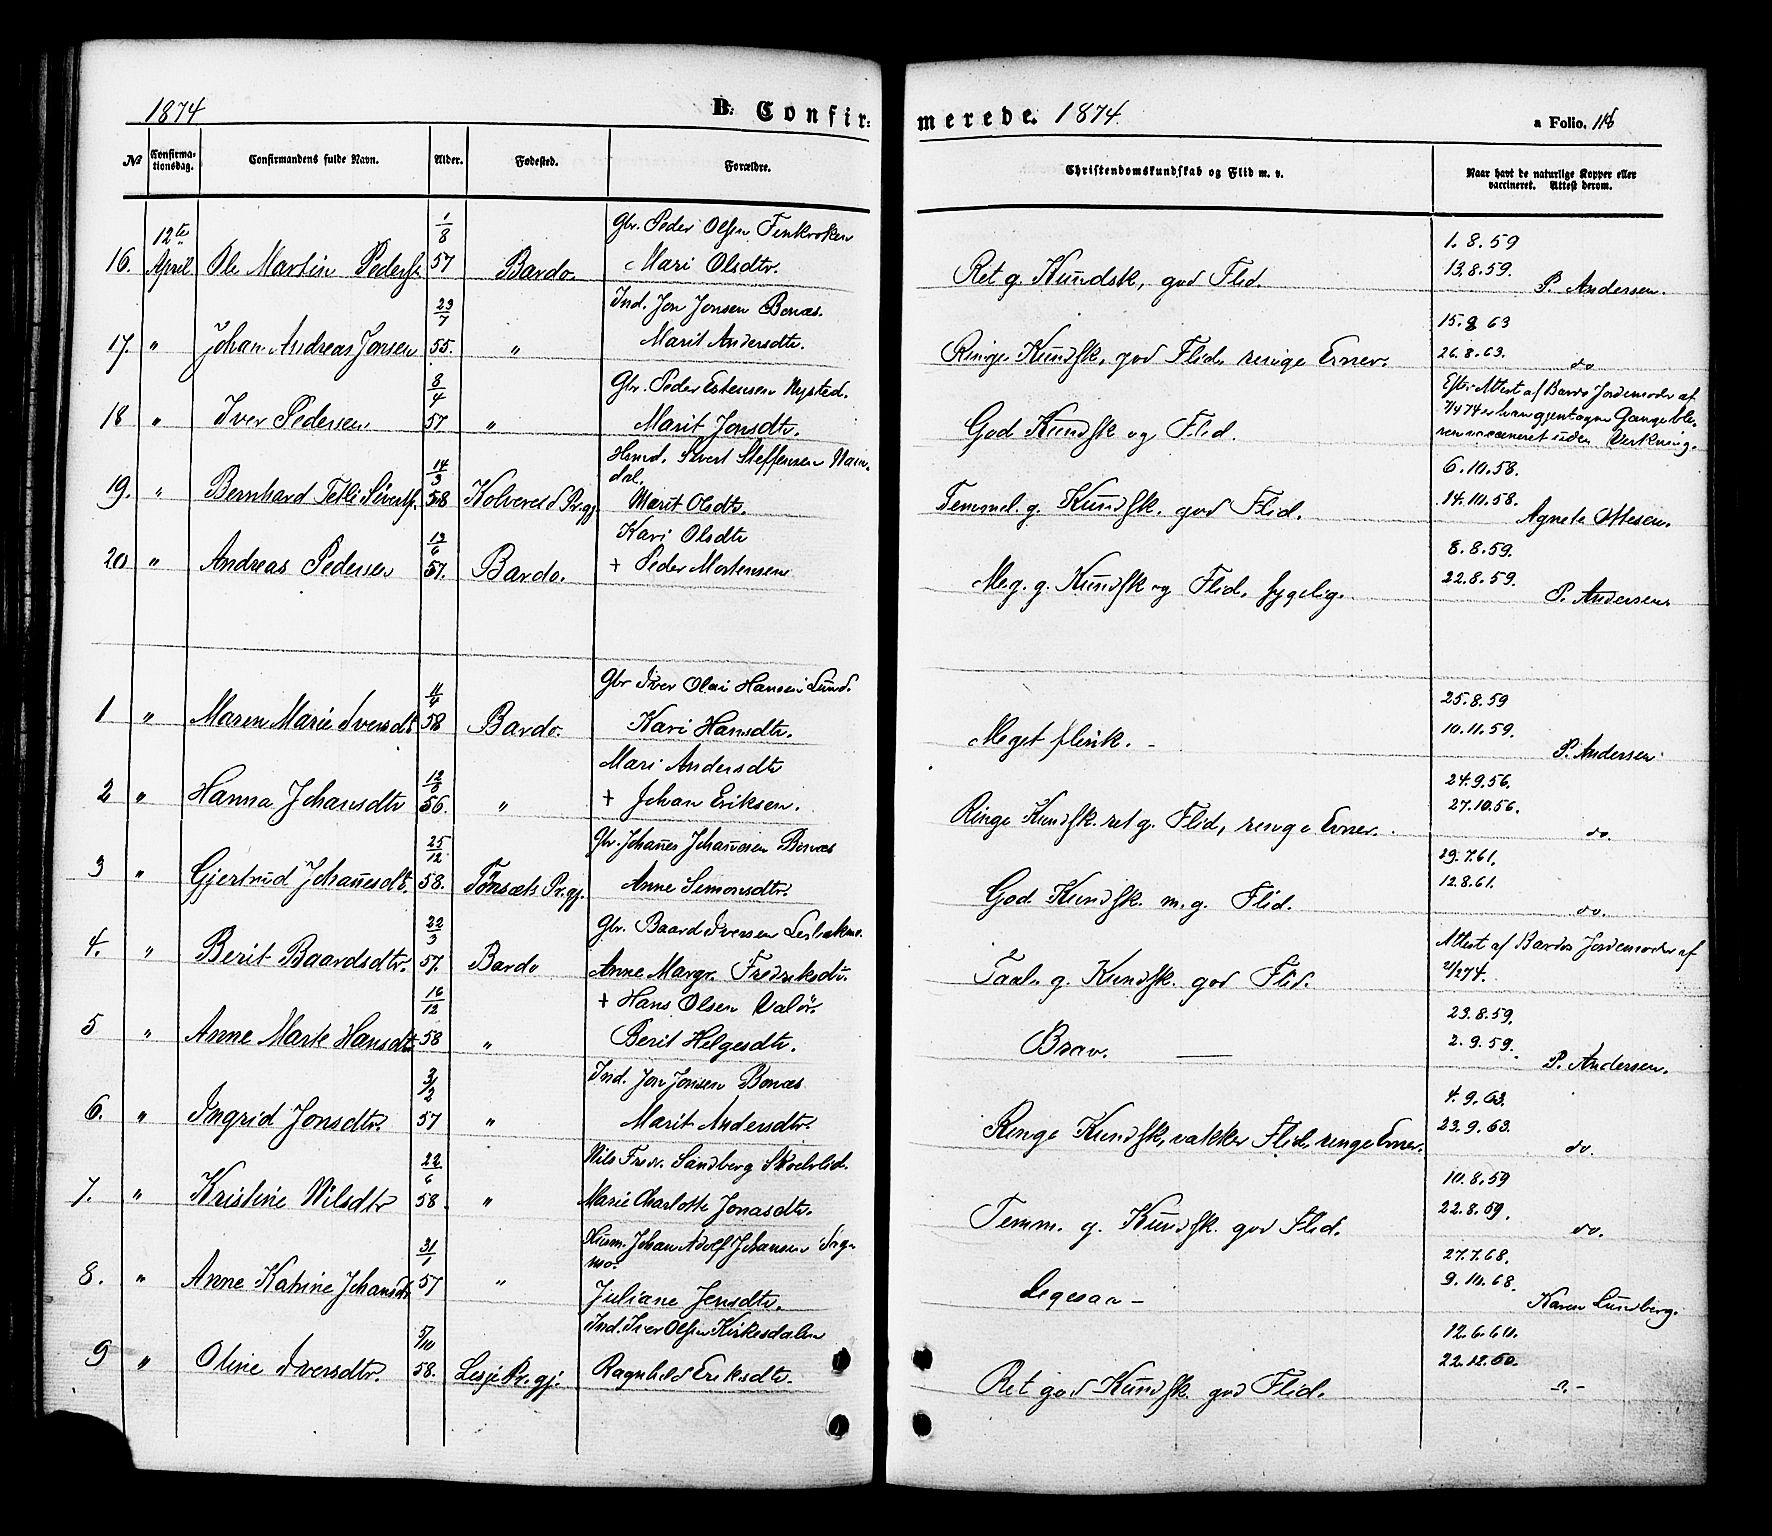 1874
B. Confirmerede. 1874
a Folio. 118
No
Confirmationsdag.
Confirmandens fulde Navn.
Alder.
Fødested.
Forældre.
Christendomskundskab og Flid m. v.
Naar havt de naturlige Kopper eller
vaccineret. Attest derom.
12te 1/8 Gbr. Peder Olsen Finkroken 1.8.59
16. April Ole Martin Peders. 57 Bardo. Mari Olsdtr. Ret g. Kundsk, god Flid. 13.8.59. P. Andersen.
23/7 Ind. Jon Jonsen Bonæs. 15.8.63
17. " Johan Andreas Jonsen 55. " Marit Andersdtr. Ringe Kundsk, god Flid, ringe Evner. 26.8.63. do
8/4 Gbr. Peder Estensen Nysted. Eft. Attest af Bardo Jordemoder af
18 " Iver Pedersen 57 " Marit Jonsdtr. God Kundsk og Flid. 7/4 74 er han gjentagne Gange ble-
ven vaccineret uden Virkning.
14/3 Hsmd. Sivert Steffensen Nam- 6.10.58.
dal.
19. " Bernhard Tetli Siverts. 58 Kolvereid Pr.gj. Marit Olsdtr. Temmel. g. Kundsk. god Flid. 14.10.58. Agneta Ottesen.
12/6 Kari Olsdtr 8.8.59.
20 " Andreas Pedersen 57. Bardo. + Peder Mortensen Meg. g. Kundsk og Flid, sygelig. 22.8.59. P. Andersen
11/4 Gbr Iver Olai Hansen Lund. 25.8.59
1 " Maren Marie Iversdt. 58 Bardo. Kari Hansdtr. Meget flink. - 10.11.59. P. Andersen
Mari Andersdtr 24.9.56.
2 " Hanna Johansdtr 56. " + Johan Eriksen. Ringe Kundsk. ret g. Flid, ringe Evner. 27.10.56. do.
25/12 Gbr. Johannes Johannesen Bonæs 29.7.61.
3 " Gjertrud Johannesdt. 58. Tønsæts Pr.gj. Anne Simonsdtr. God Kundsk. m. g. Flid. 12.8.61. do.
22/3 Gbr. Baard Iversen Attest af Bardos Jordemoder af
4. " Berit Baardsdtr. 57. Bardo Anne Margr. Fredriksdtr. Taal. g. Kundsk. god Flid. 2/2 74.
16/12 + Hans Olsen Valør. 23.8.59.
5 " Anne Marte Hansdtr. 58 " Berit Helgesdtr. Brav. — 2.9.59. P. Andersen.
3/2 Ind. Jon Jonsen Bonæs 4.9.63.
6. " Ingrid Jonsdtr. 57 " Marit Andersdtr. Ringe Kundsk, vakker Flid, ringe Evner. 23.9.63. do.
22/6 Nils Fredr. Sandberg 10.8.59
7. " Kristine Nilsdtr 58. " Marie Charlotte Jonasdtr. Temm. g. Kundsk. god Flid. 22.8.59. do.
31/1 Husm. Johan Adolf Johansen Sørg-
mo. 27.7.68.
8. " Anne Katrine Johansdtr 57 " Juliane Jensdtr. Ligesaa - 9.10.68. Karen Lundberg.
5/10 Ind. Iver Olsen Kirkesdalen 12.6.60.
9 " Oline Iversdtr. 58. Lesje Pr.gj. Ragnhild Eriksdtr. Ret god Kundsk. god Flid. 22.12.60.